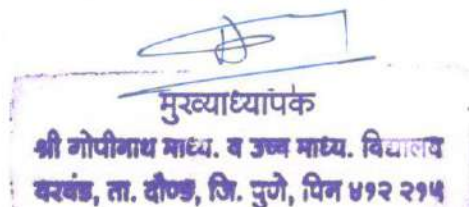 मुख्याध्यापक
श्री गोपीनाथ माध्य. व उच्च माध्य. विद्यालय
वरवंड, ता. दौण्ड, जि. पुणे, पिन ४१२ २१५